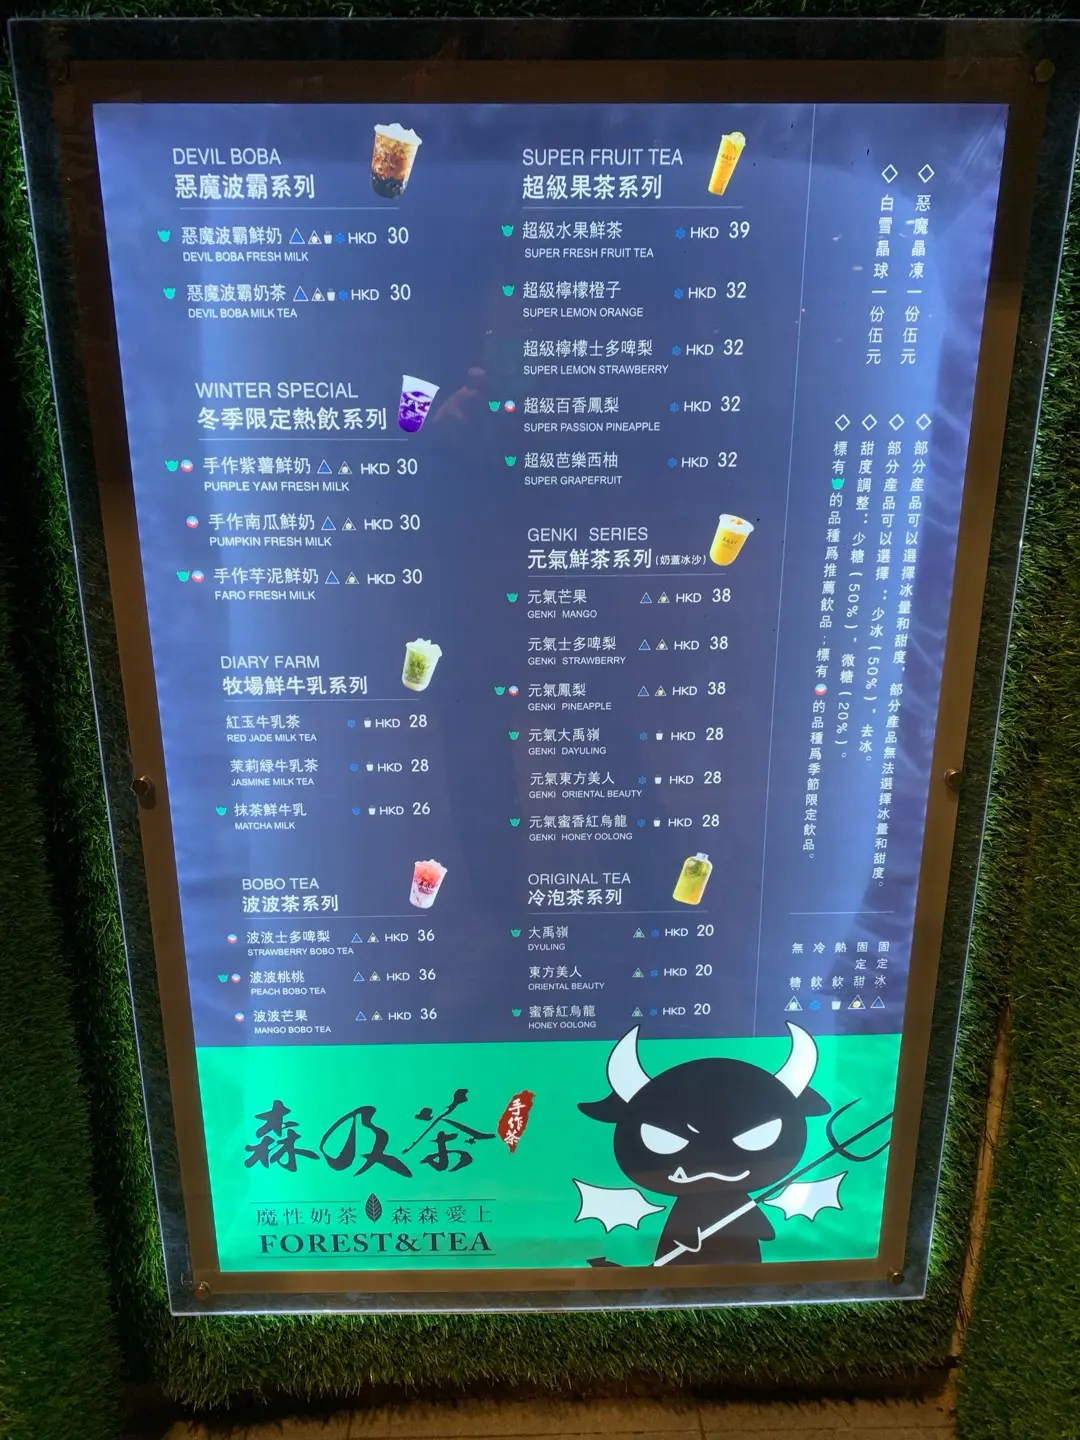 DEVIL BOBA
惡魔波霸系列
惡魔波霸鮮奶 HKD 30
DEVIL BOBA FRESH MILK
惡魔波霸奶茶 HKD 30
DEVIL BOBA MILK TEA
WINTER SPECIAL
冬季限定熱飲系列
手作紫薯鮮奶 HKD 30
PURPLE YAM FRESH MILK
手作南瓜鮮奶 HKD 30
PUMPKIN FRESH MILK
手作芋泥鮮奶 HKD 30
FARO FRESH MILK
DIARY FARM
牧場鮮牛乳系列
紅玉牛乳茶 HKD 28
RED JADE MILK TEA
茉莉綠牛乳茶 HKD 28
JASMINE MILK TEA
抹茶鮮牛乳 HKD 26
MATCHA MILK
BOBO TEA
波波茶系列
波波士多啤梨 HKD 36
STRAWBERRY BOBO TEA
波波桃桃 HKD 36
PEACH BOBO TEA
波波芒果 HKD 36
MANGO BOBO TEA
SUPER FRUIT TEA
超級果茶系列
超級水果鮮茶 HKD 39
SUPER FRESH FRUIT TEA
超級檸檬橙子 HKD 32
SUPER LEMON ORANGE
超級檸檬士多啤梨 HKD 32
SUPER LEMON STRAWBERRY
超級百香鳳梨 HKD 32
SUPER PASSION PINEAPPLE
超級芭樂西柚 HKD 32
SUPER GRAPEFRUIT
GENKI SERIES
元氣鮮茶系列(奶蓋冰沙)
元氣芒果 HKD 38
GENKI MANGO
元氣士多啤梨 HKD 38
GENKI STRAWBERRY
元氣鳳梨 HKD 38
GENKI PINEAPPLE
元氣大禹嶺 HKD 28
GENKI DAYULING
元氣東方美人 HKD 28
GENKI ORIENTAL BEAUTY
元氣蜜香紅烏龍 HKD 28
GENKI HONEY OOLONG
ORIGINAL TEA
冷泡茶系列
大禹嶺 HKD 20
DYULING
東方美人 HKD 20
ORIENTAL BEAUTY
蜜香紅烏龍 HKD 20
HONEY OOLONG
惡魔晶凍一份伍元
白雪晶球一份伍元
部分産品可以選擇冰量和甜度，部分産品無法選擇冰量和甜度。
部分産品可以選擇：少冰(50%)，去冰。
甜度調整：少糖(50%)，微糖(20%)。
標有的品種爲推薦飲品；標有的品種爲季節限定飲品。
固定冰：
固定甜：
熱飲：
冷飲：
無糖：
森及茶
手作茶
魔性奶茶 森森愛上
FOREST&TEA